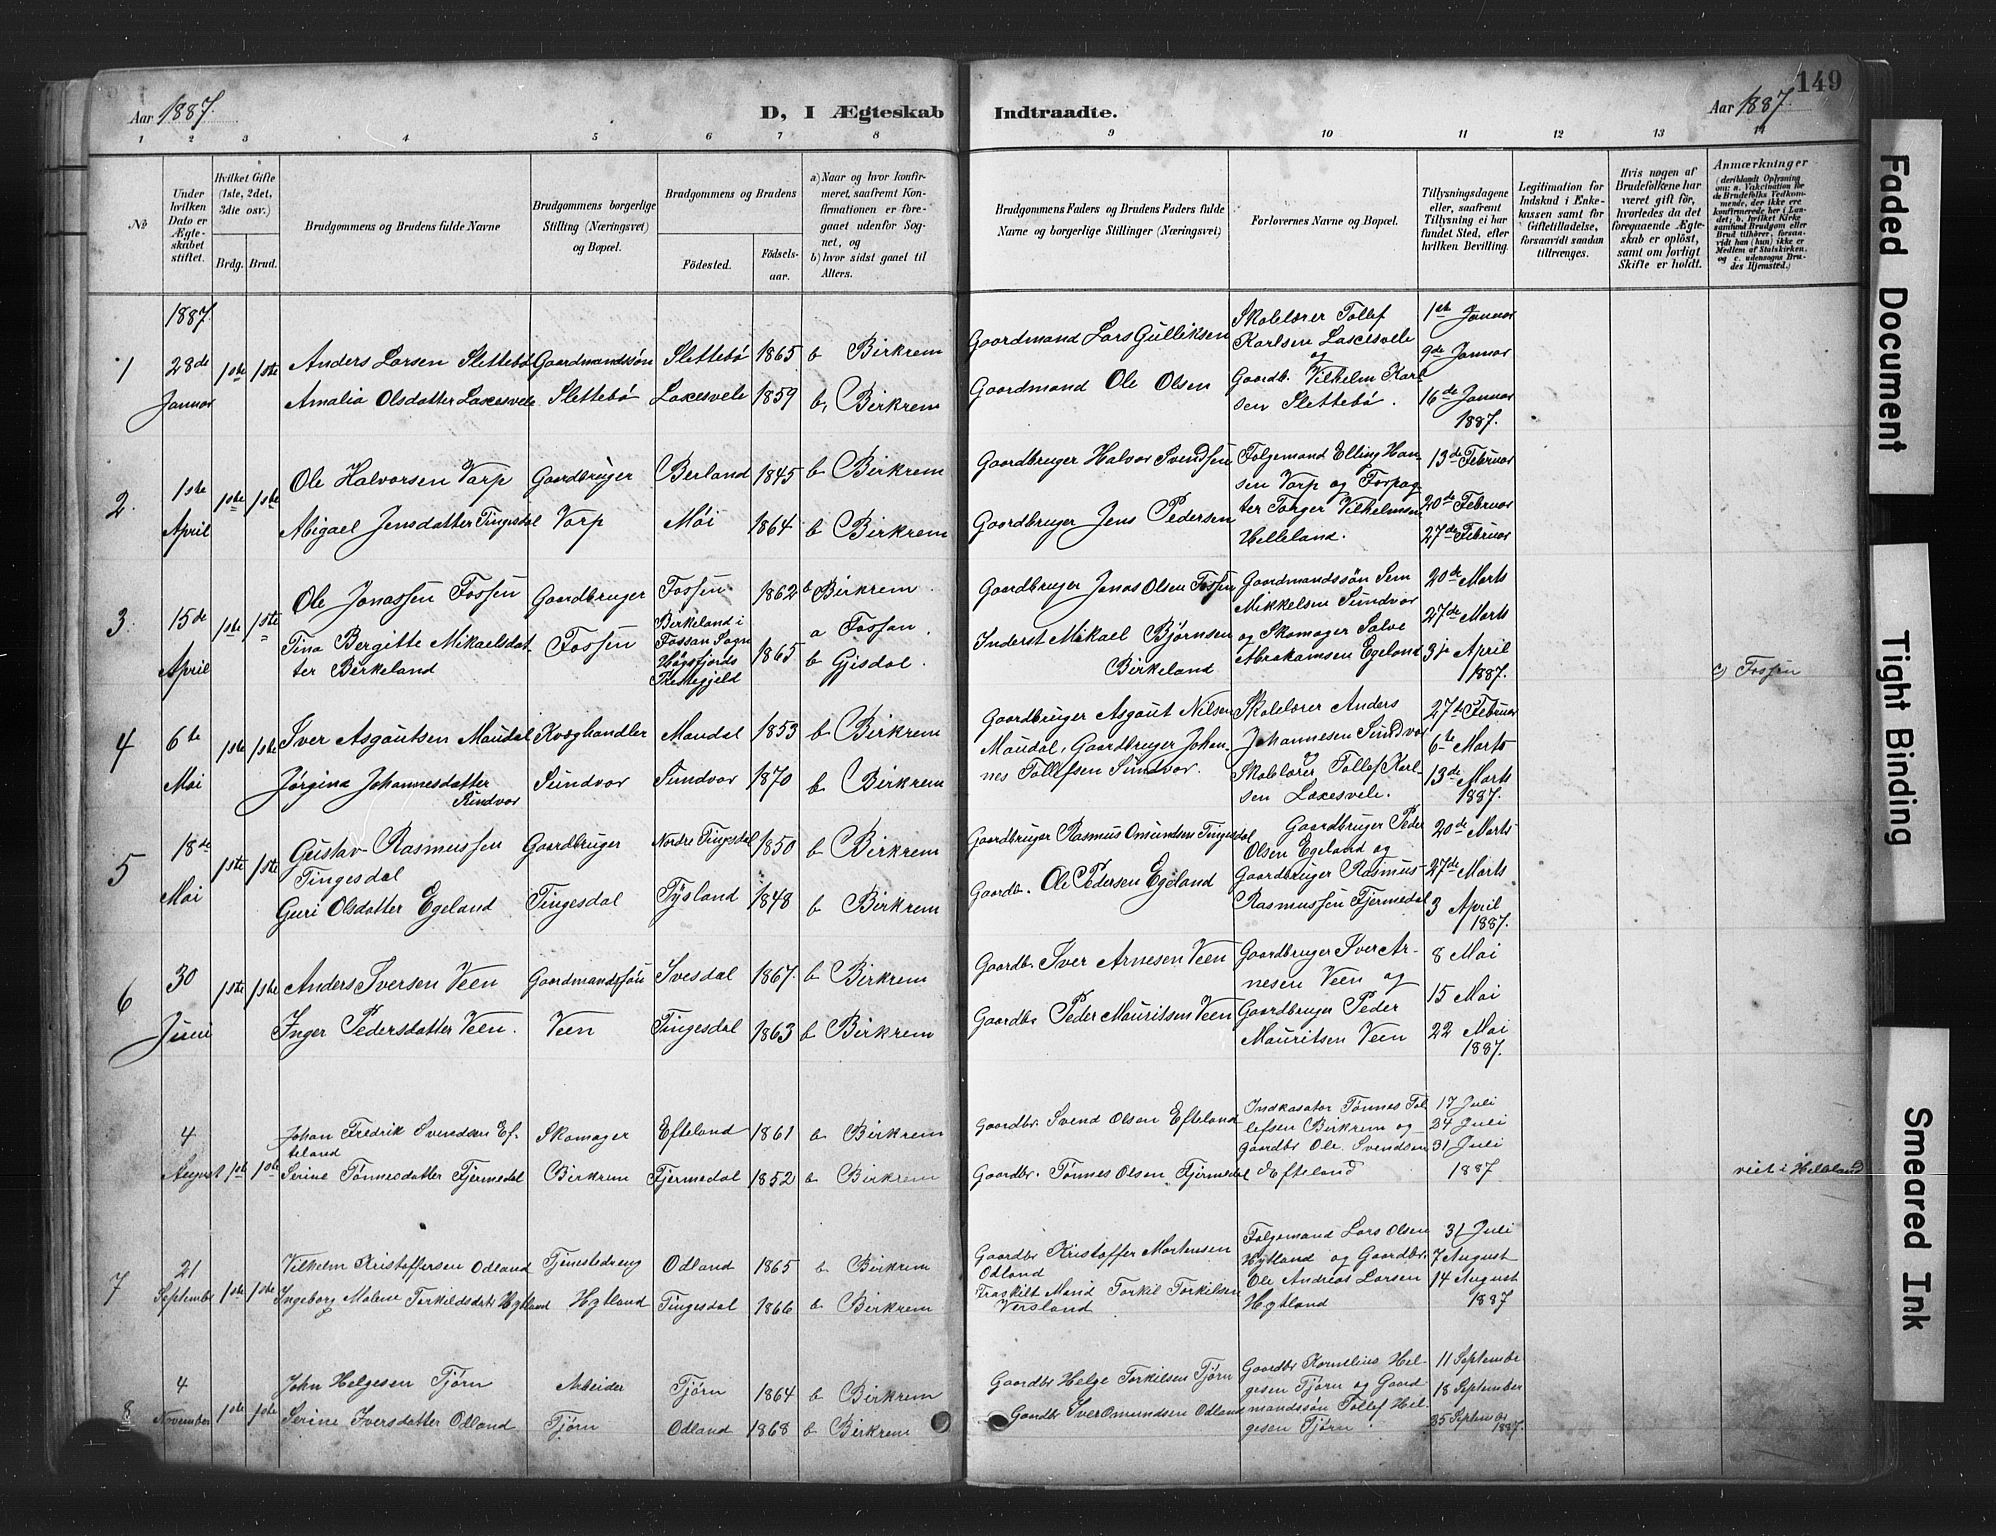 Aar 1887.
D, I Ægteskab Indtraadte.
149
Aar 1887.
1 2 3 4 5 6 7 8 9 10 11 12 13 14
No
Under hvilken Dato er Ægteskabet stiftet.
Hvilket Gifte (1ste, 2det, 3die osv.)
Brdg. Brud.
Brudgommens og Brudens fulde Navne
Brudgommens borgerlige Stilling (Næringsvei) og Bopæl.
Brudgommens og Brudens
Fødested.
Fødselsaar.
a) Naar og hvor konfirmeret, saafremt Konfirmationen er foregaaet udenfor Sognet, og
b) hvor sidst gaaet til Alters.
Brudgommens Faders og Brudens Faders fulde Navne og borgerlige Stillinger (Næringsvei)
Forlovernes Navne og Bopæl.
Tillysningsdagene eller, saafremt Tillysning ei har fundet Sted, efter hvilken Bevilling.
Legitimation for Indskud i Enkekassen samt for Giftetilladelse, forsaavidt saadan tiltrænges.
Hvis nogen af Brudefolkene har været gift før, hvorledes da det foregaaende Ægteskab er opløst, samt om lovligt Skifte er holdt.
Anmærkninger
(deriblandt Oplysning om: a. Vakcination for de Brudefolks Vedkommende, der ikke ere konfirmerede her i Landet; b. hvilket Kirkesamfund Brudgom eller Brud tilhører, forsaavidt han (hun) ikke er Medlem af Statskirken, og c. udensogns Brudes Hjemsted.)
1887.
1 28de Januar 1ste 1ste
Anders Larsen Slettebø Gaardmandssøn Slettebø 1865 b Birkrem
Amalia Olsdatter Laxesvele Slettebø Laxesvele 1859 b. Birkrem
Gaardmand Lars Gulliksen
Gaardmand Ole Olsen
Skolelærer Tollef
Karlsen Laxesvele
og
Gaardb. Vilhelm Karl
sen Slettebø.
1ste Januar
9de Januar
16de Januar
1887.
2. 1ste April 1ste 1ste
Ole Halvorsen Varp Gaardbruger Berland 1845 b Birkrem
Abigael Jensdatter Tingesdal Varp Moi 1864 b Birkrem
Gaardbruger Halvor Svendsen
Gaardbruger Jens Pedersen
Folgemand Elling Han-
sen Varp og Forpag-
ter Torger Vilhelmsen
Helleland.
13de Februar
20de Februar
27de Februar
3. 15de April 1ste 1ste
Ole Jonassen Fossen Gaardbruger Fossen 1862 b Birkrem.
Tina Bergitte Mikaelsdat-
ter Birkeland Fossen
Birkeland i
Fossan Sogn
Høgsfjords
Prestegjeld
1865
a Fossan.
b Gjisdal.
Gaardbruger Jonas Olsen Fossen
Inderst Mikael Bjørnsen
Birkeland
Gaardmandssøn Sem
Mikkelsen Sundvor
og Skomager Salve
Abrahamsen Egeland
20de Marts
27de Marts
3die April
1887.
c) Fossan
4 6te Mai 1ste 1ste
Iver Asgautsen Maudal Kvæghandler Maudal 1853 b Birkrem
Jørgina Johannesdatter
Sundvor Sundvor Sundvor 1870 b Birkrem
Gaardbruger Asgaut Nilsen
Maudal, Gaardbruger Johan-
nes Tollefsen Sundvor.
Skolelærer Anders
Johannesen Sundvor
og
Skolelærer Tollef Karl-
sen Laxesvele.
27de Februar
6te Marts
13de Marts
1887.
5 18de Mai 1ste 1ste
Gustav Rasmussen Gaardbruger Nordre Tingsdal 1850 b Birkrem
Tingesdal
Guri Olsdatter Egeland Tingesdal Tysland 1848 b Birkrem
Gaardbruger Rasmus Omundsen Tingesdal
Gaardb. Ole Pedersen Egeland
Gaardbruger Peder
Olsen Egeland og
Gaardbruger Rasmus
Rasmussen Fjermedal
20de Marts
27de Marts
3 April
1887.
6 30 Juni 1ste 1ste
Anders Iversen Veen Gaardmandssøn Ivesdal 1867. b Birkrem
Inger Pedersdatter Veen. Veen Tingesdal 1863 b Birkrem
Gaardb. Iver Arnesen Veen
Gaardbr Peder Mauritsen Veen
Gaardbruger Iver Ar-
nesen Veen og
Gaardbruger Peder
Mauritsen Veen
8 Mai
15 Mai
22 Mai
1887.
4 August 1ste 1ste
Johan Fredrik Svendsen Ef-
teland Skomager Efteland 1861 b Birkrem
Serine Tønnesdatter Fjermedal Birkrem Fjermedal 1852 b Birkrem
Gaardbr. Svend Olsen Efteland
Gaardbr. Tønnes Olsen Fjermedal
Indkasator Tønnes Tol
lefsen Birkrem og
Gaardbr Ole Svendsen
Efteland
17 Juli
24 Juli
31 Juli
1887
viet i Helleland
7 21 September 1ste 1ste
Vilhelm Kristoffersen Odland Tjenestedreng Odland 1865 b Birkrem
Ingeborg Malene Torkildsdatt. Hytland Hytland Tingesdal 1866 b Birkrem
Gaardbr Kristoffer Mortensen
Odland
Fraskilt Mand Torkil Torkilsen
Versland
Folgemand Lars Olsen
Hytland og Gaardbr.
Ole Andrias Larsen
Hytland
31 Juli
7 August
14 August
1887
8 4 November 1ste 1ste
John Helgesen Tjørn Arbeider Tjørn 1864 b Birkrem
Serine Iversdatter Odland Tjørn Odland 1868 b Birkrem
Gaardbr Helge Torkilsen Tjørn
Gaardbr Iver Omundsen Odland
Gaardbr Kornelius Hel-
gesen Tjørn og Gaard
mandssøn Tollef Hel-
gesen Tjørn.
11 September
18 September
25 September
1887.
Faded Document
Tight Binding
Smeared Ink